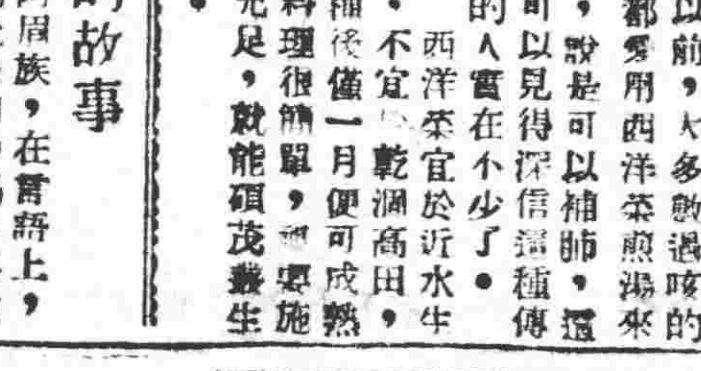 以前，大多數過咳的
都愛用西洋菜煎湯來
，說是可以補肺，這
可以見得深信這種傳
的人實在不少了。
西洋菜宜於近水生
，不宜乾涸高田，
後僅一月便可成熟
料理很簡單，要施
充足，就能碩茂叢生
。
的故事
族，在語上，